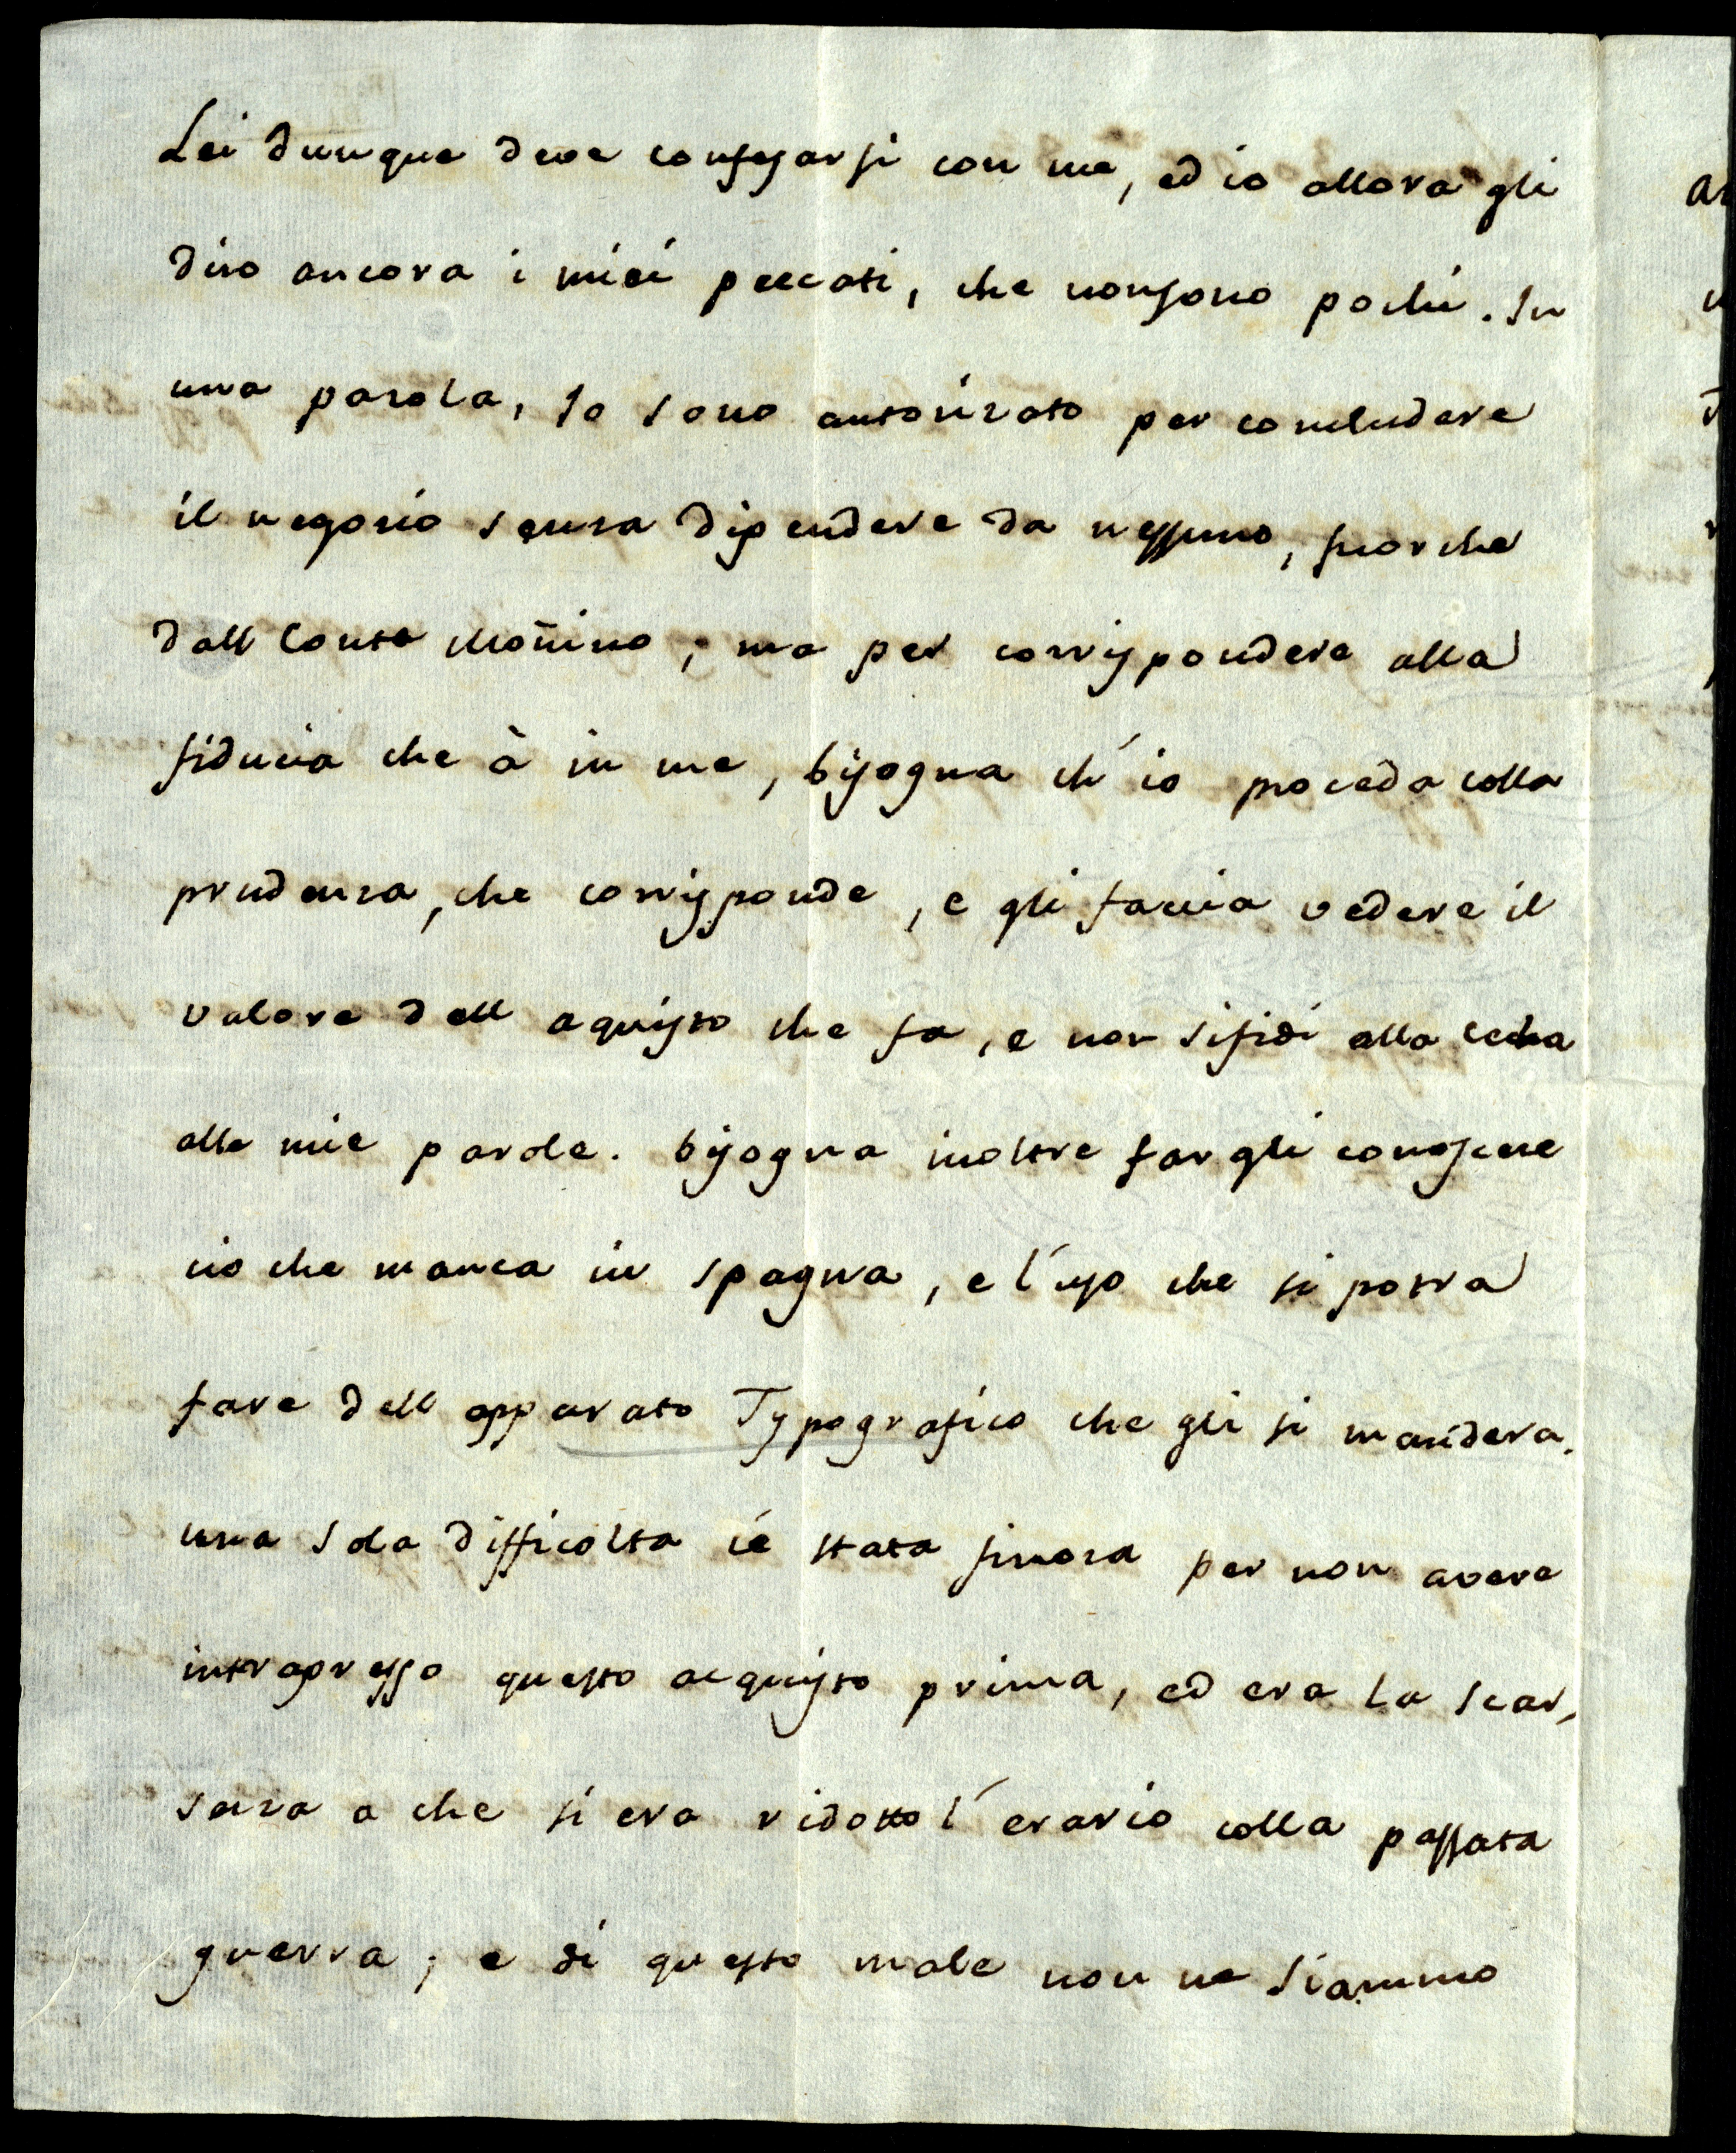 Lei dunque deve confesarsi con me, ed io allora gli
diro ancora i miei peccati, che nonsono pochi. In
una parola, Io sono autorizato per concludere
il negozio senza dipendere da nessuno, fuorche
dall Conte Moñino; ma per corrispondere alla
fiducia che à in me, bisogna ch'io proceda colla
prudenza, che corrisponde, e gli faccia vedere il
valore dell aquisto che fa, e non sifidi alla cecha
alle mie parole. bisogna inoltre fargli conoscere
cio che manca in spagna, e l'uso che si potra
fare dell apparato Typografico che gli si mandera.
una sola difficolta cé stata finora per non avere
intrapresso questo acquisto prima, ed era la scar,
seza a che si era ridotto l'erario colla passata
guerra; e di questo male non ne siammo